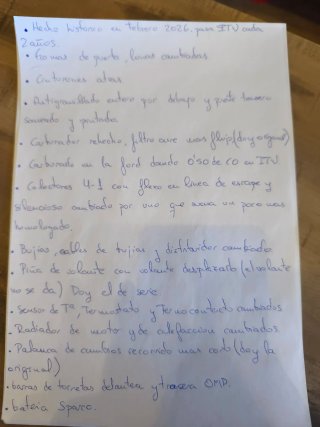 • Hecho historico en febrero 2026, pasa ITV cada
2 años.
• Gomas de puerta, lunas cambiadas.
• Cinturones atras.
• Antigravillado entero por debajo y parte trasera
saneado y pintado.
• Carburador rehecho, filtro aire mas flujo (doy original)
• Carburado en la ford dando 0'50 de co en ITV
• Colectores 4-1 con flexo en linea de escape y
silencioso cambiado por uno que suena un poco mas
homologado.
• Bujias, cables de bujias y distribuidor cambiado
• Piña de volante con volante desplazado (el volante
no se da) Doy el de serie.
• Sensor de Tª Termostato y Termocontacto cambiados
• Radiador de motor y de calefaccion cambiados.
• Palanca de cambios recorrido mas corto (doy la
original)
• barras de torretas delantera y trasera OMP.
• bateria Sparco.